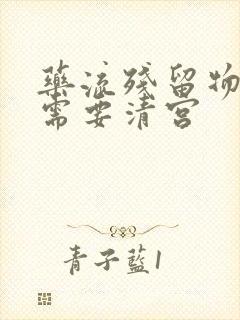 藥流殘留物
需要清宮
青子藍1